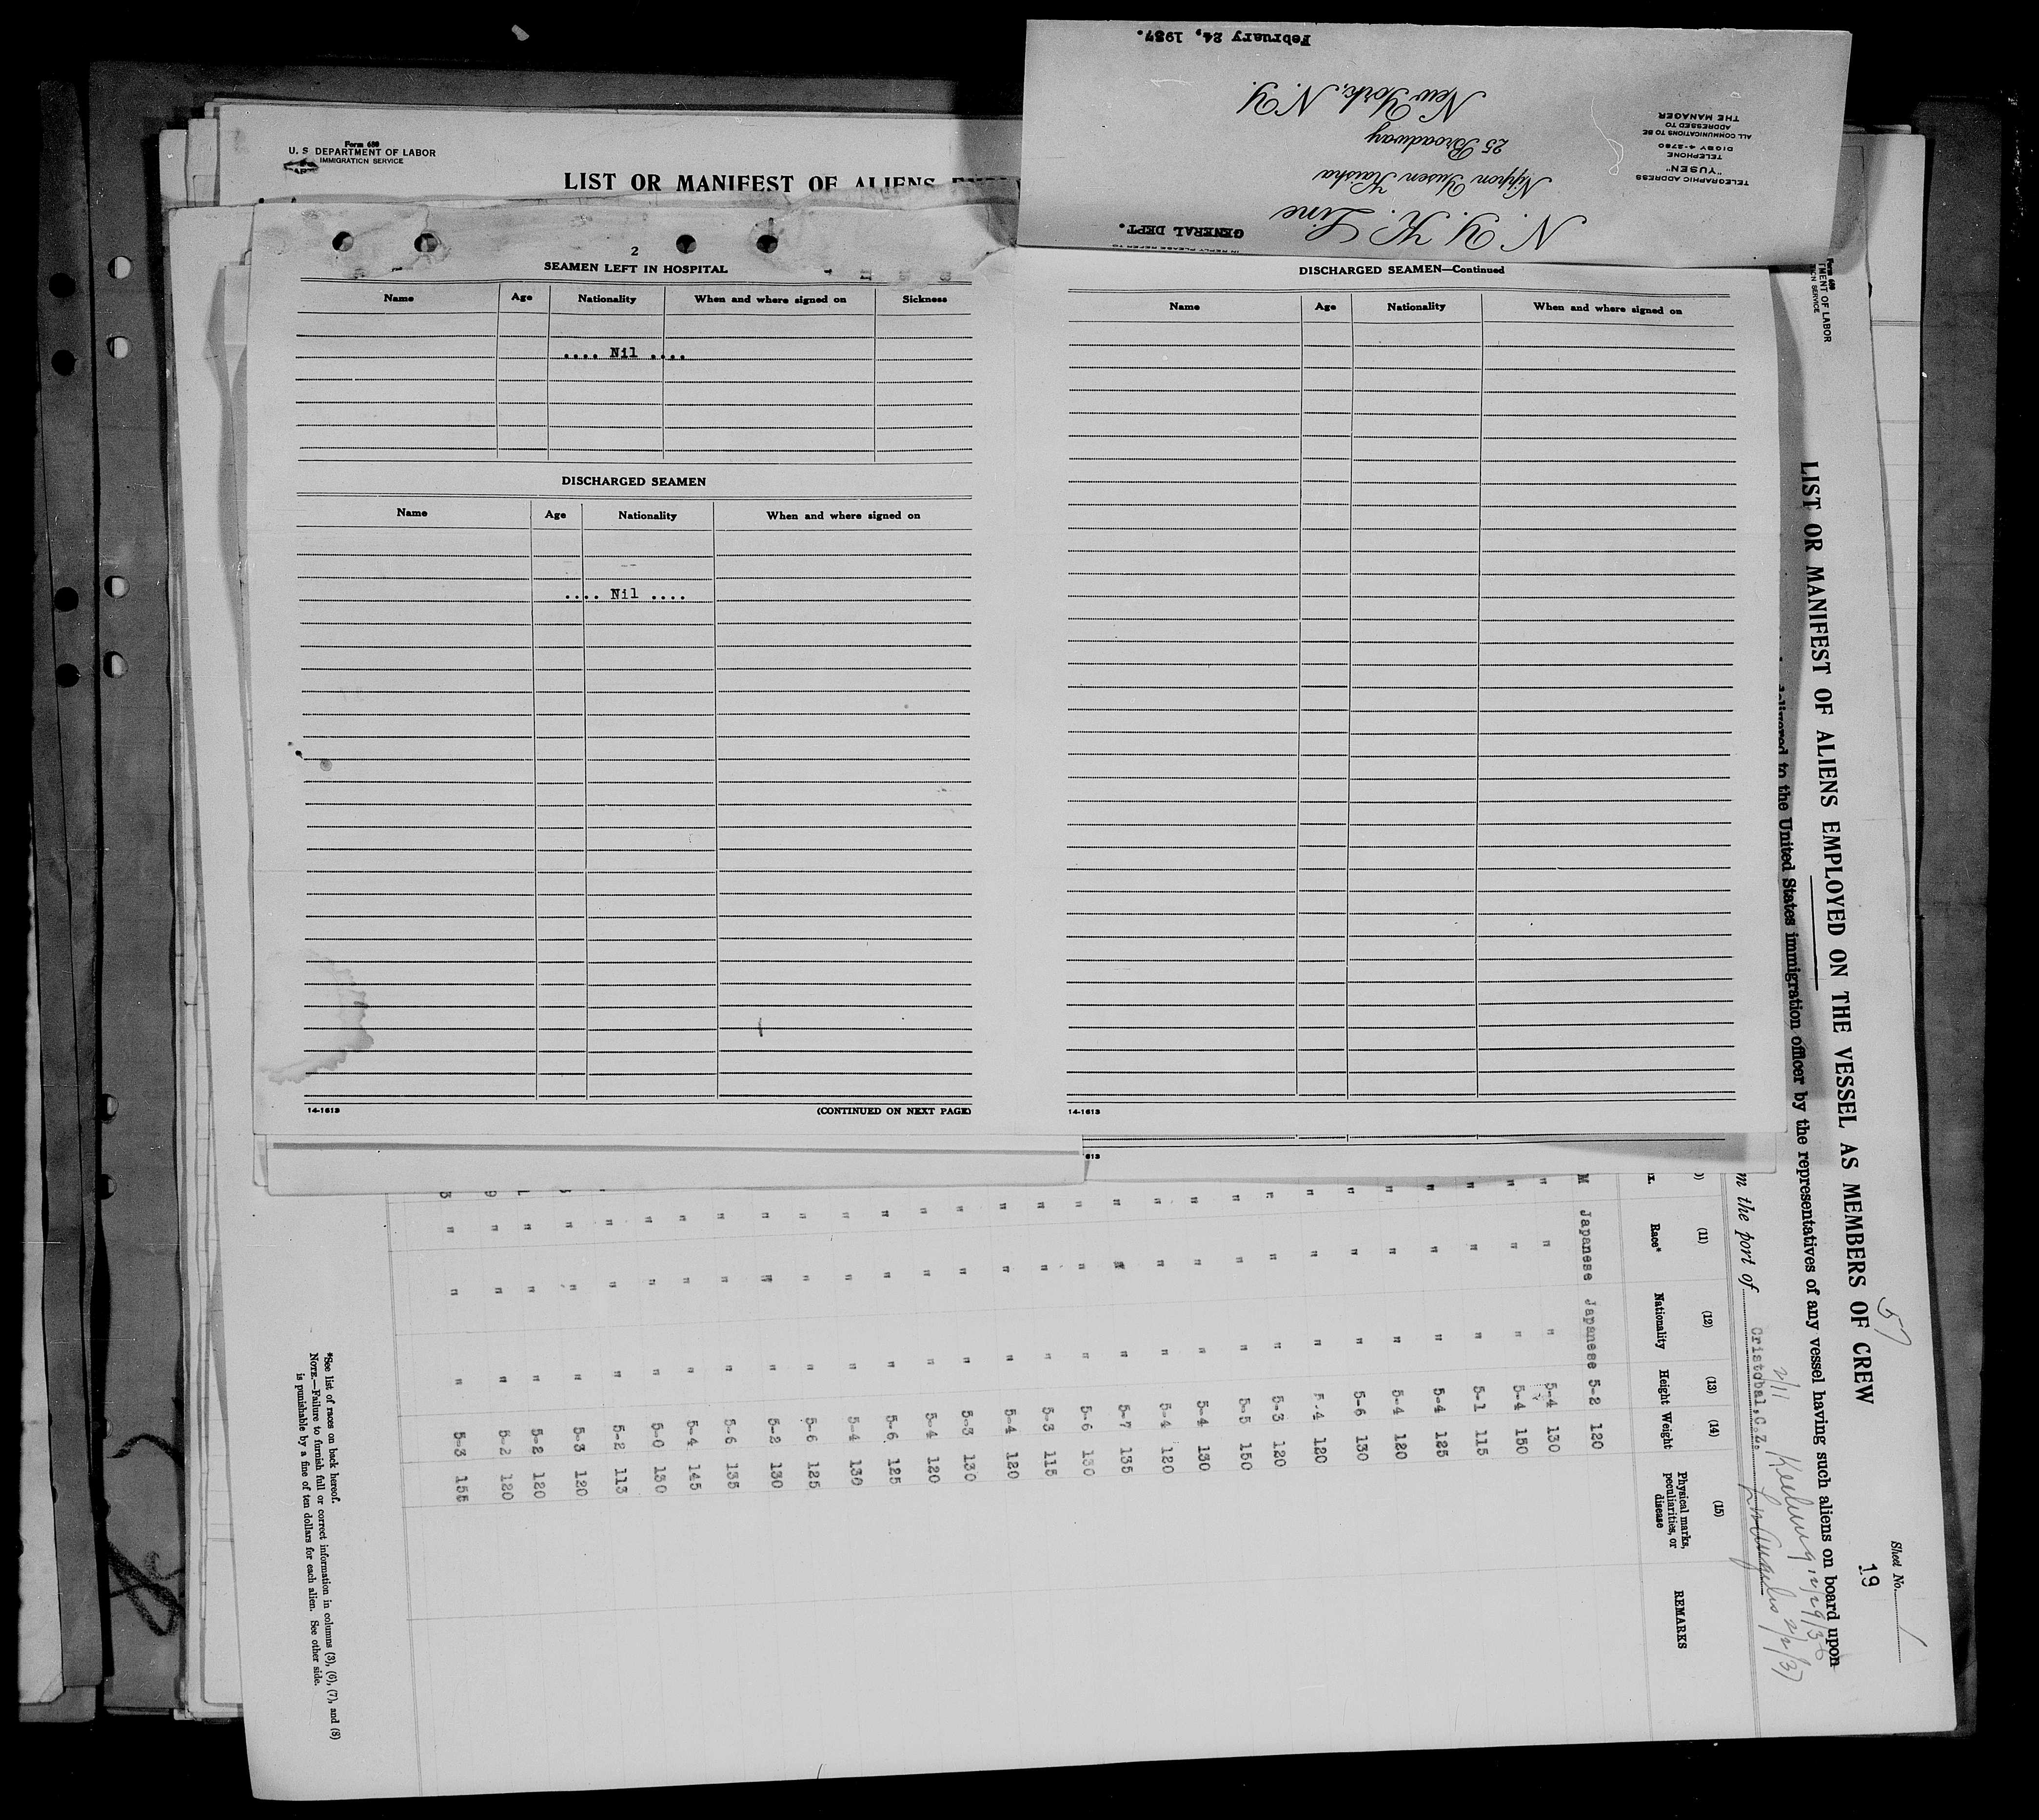 Form 689
U. S. DEPARTMENT OF LABOR
IMMIGRATION SERVICE
LIST OR MANIFEST OF ALIENS
February 24, 1937.
New York, N.Y.
25 Broadway
Nippon Yusen Kaisha
N. Y. K. Line
GENERAL DEPT.
IN REPLY PLEASE REFER TO
TELEGRAPHIC ADDRESS
"YUSEN"
TELEPHONE
DIGBY 4-2780
ALL COMMUNICATIONS TO BE
ADDRESSED TO
THE MANAGER
2
SEAMEN LEFT IN HOSPITAL
Name Age Nationality When and where signed on Sickness
.... Nil ....
DISCHARGED SEAMEN
Name Age Nationality When and where signed on
.... Nil ....
14-1613 (CONTINUED ON NEXT PAGE)
DISCHARGED SEAMEN—Continued
Name Age Nationality When and where signed on
14-1613
613
Form 689
TMENT OF LABOR
ION SERVICE
Sheet No. 1
19
57
LIST OR MANIFEST OF ALIENS EMPLOYED ON THE VESSEL AS MEMBERS OF CREW
delivered to the United States immigration officer by the representatives of any vessel having such aliens on board upon
2/11 Keelung 12/29/36
m the port of Cristobal, C.Z. Los Angeles 2/2/37
(11) (12) (13) (14) (15)
Race* Nationality Height Weight Physical marks, peculiarities, or disease REMARKS
M Japanese Japanese 5-2 120
" " " 5-4 130
" " " 5-4 150
" " " 5-1 115
" " " 5-4 125
" " " 5-4 120
" " " 5-6 130
" " " 5-4 120
" " " 5-3 120
" " " 5-5 150
" " " 5-4 130
" " " 5-4 120
" " " 5-7 135
" " " 5-6 130
" " " 5-3 115
" " " 5-4 120
" " " 5-3 130
" " " 5-4 120
" " " 5-6 125
" " " 5-4 130
" " " 5-6 125
" " " 5-2 130
" " " 5-6 135
" " " 5-4 145
" " " 5-0 130
" " " 5-2 113
" " " 5-3 120
" " " 5-2 120
" " " 5-2 120
" " " 5-3 155
*See list of races on back hereof.
NOTE.—Failure to furnish full or correct information in columns (3), (6), (7), and (8)
is punishable by a fine of ten dollars for each alien. See other side.